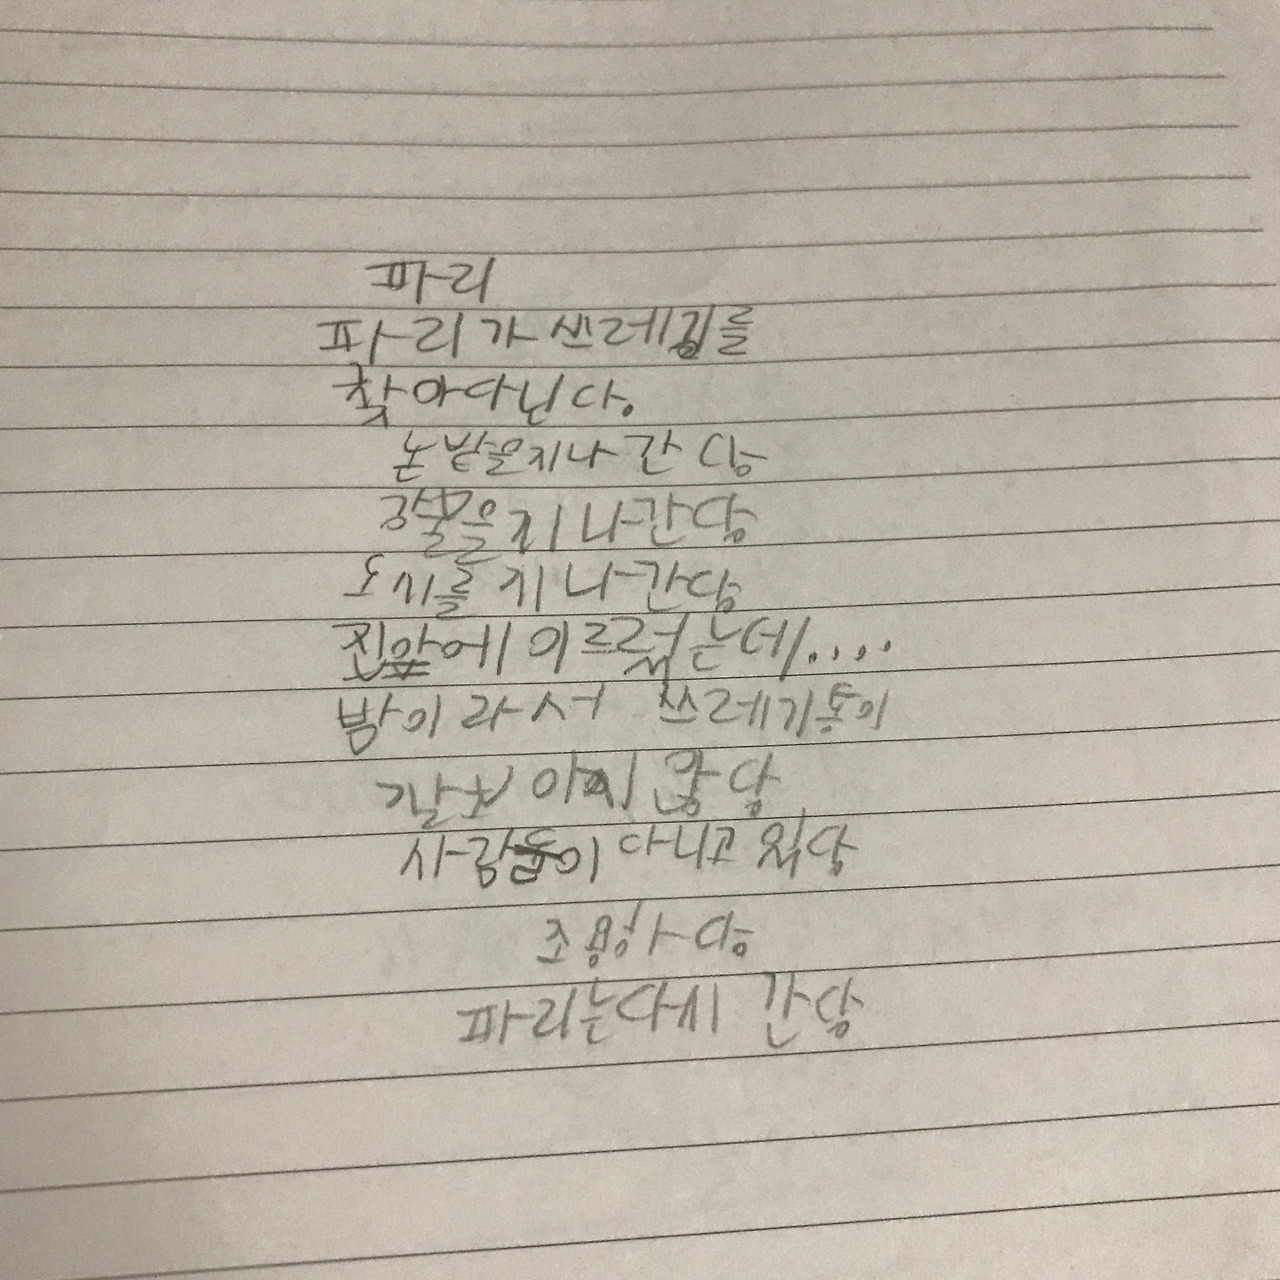 파리
파리가 쓰레기를
찾아다닌다.
논밭을지나 간 당
강물을 지나간당
도시를 지나간당
집앞에 이르렀는데....
밤이라서 쓰레기통이
사람들이 다니고 있당
조용하당
파리는다시 간당